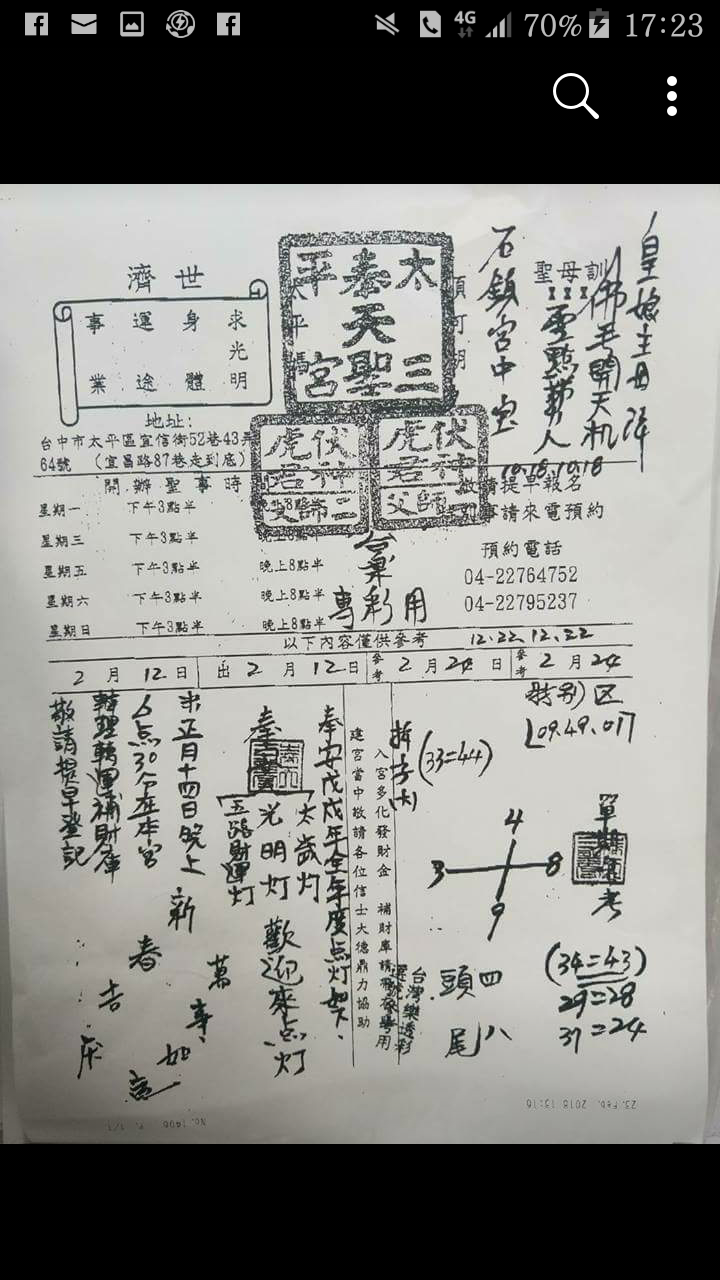 4G 70% 17:23
皇娘主母降
佛毛開天机
聖母訓
靈點靜人
石鎮宮中宝
10.18.10.18
太平
奉天
三聖宮
濟世
求光明
身體
運途
事業
地址:
台中市太平區宜信街52巷43弄
64號 (宜昌路87巷走到底)
伏神虎君二師父
伏神虎君一師父
開辦聖事時
星期一 下午3點半 晚上8點半
星期三 下午3點半 晚上8點半
星期五 下午3點半 晚上8點半
星期六 下午3點半 晚上8點半
星期日 下午3點半 晚上8點半
敬請提早報名
事請來電預約
預約電話
04-22764752
04-22795237
台彩
專用
以下內容僅供參考
12.22.12.22
2月12日 出2月12日 參考2月24日 參考2月24
特別区
09.49.01
單
考
(34=43)
29=28
31=24
4
3 8
9
頭四
尾八
拆字(大)
(33=44)
台灣樂透彩
入宮多化發財金 補財庫請
建宮當中敬請各位信士大德鼎力協助
奉安戊戌年全年度点灯如下.
奉
太歲灯
光明灯
五路財運灯
歡迎來点灯
正月十四日晚上
6点30分在本宮
辦理轉運補財庫
敬請提早登記
新春吉庆
萬事如意
23. Feb. 2018 13:16
No. 1406 P. 1/1